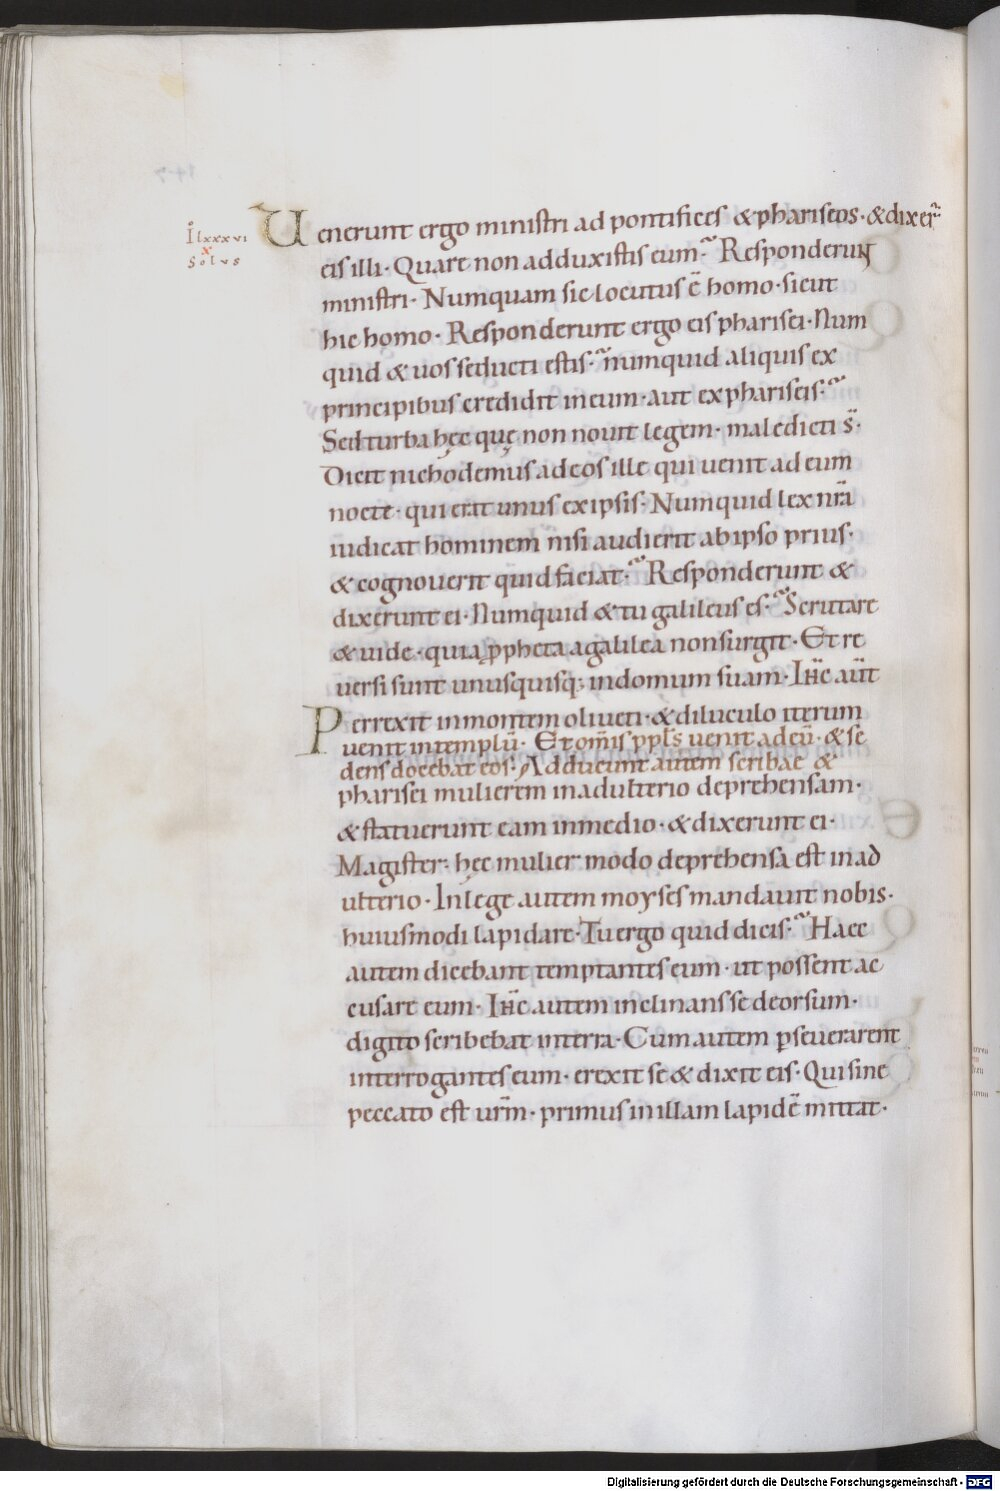 Uenerunt ergo ministri ad pontifices & phariseos · & dixer̄
Ilxxxvi
x
Solus
eis illi · Quare non adduxistis eum? Responderunt
ministri · Numquam sic locutus ē homo · sicut
hic homo · Responderunt ergo eis pharisei · Num
quid & uos seducti estis? numquid aliquis ex
principibus credidit in eum · aut ex phariseis?
Sed turba hęc quę non nouit legem · maledicti s̄ ·
Dicit nichodemus ad eos ille qui uenit ad eum
nocte · qui erat unus ex ipsis · Numquid lex nr̄a
iudicat hominem nisi audierit ab ipso prius ·
& cognouerit quid faciat? Responderunt &
dixerunt ei · Numquid & tu galileus es? Scrutare
& uide · quia ꝓpheta a galilea non surgit · Et re
uersi sunt unusquisq; in domum suam · Ihc̄ aūt
Perrexit in montem oliueti · & diluculo iterum
uenit in templū · Et om̄is ppl̄s uenit ad eū · & se
dens docebat eos · Adducunt autem scribae &
pharisei mulierem in adulterio deprehensam ·
& statuerunt eam in medio · & dixerunt ei ·
Magister · hęc mulier modo deprehensa est in ad
ulterio · In lege autem moyses mandauit nobis ·
huiusmodi lapidare · Tu ergo quid dicis? Haec
autem dicebant temptantes eum · ut possent ac
cusare eum · Ihc̄ autem inclinans se deorsum ·
digito scribebat in terra · Cum autem ꝑseuerarent
interrogantes eum · erexit se & dixit eis · Qui sine
peccato est ur̄m · primus in illam lapidē mittat ·
Digitalisierung gefördert durch die Deutsche Forschungsgemeinschaft - DFG